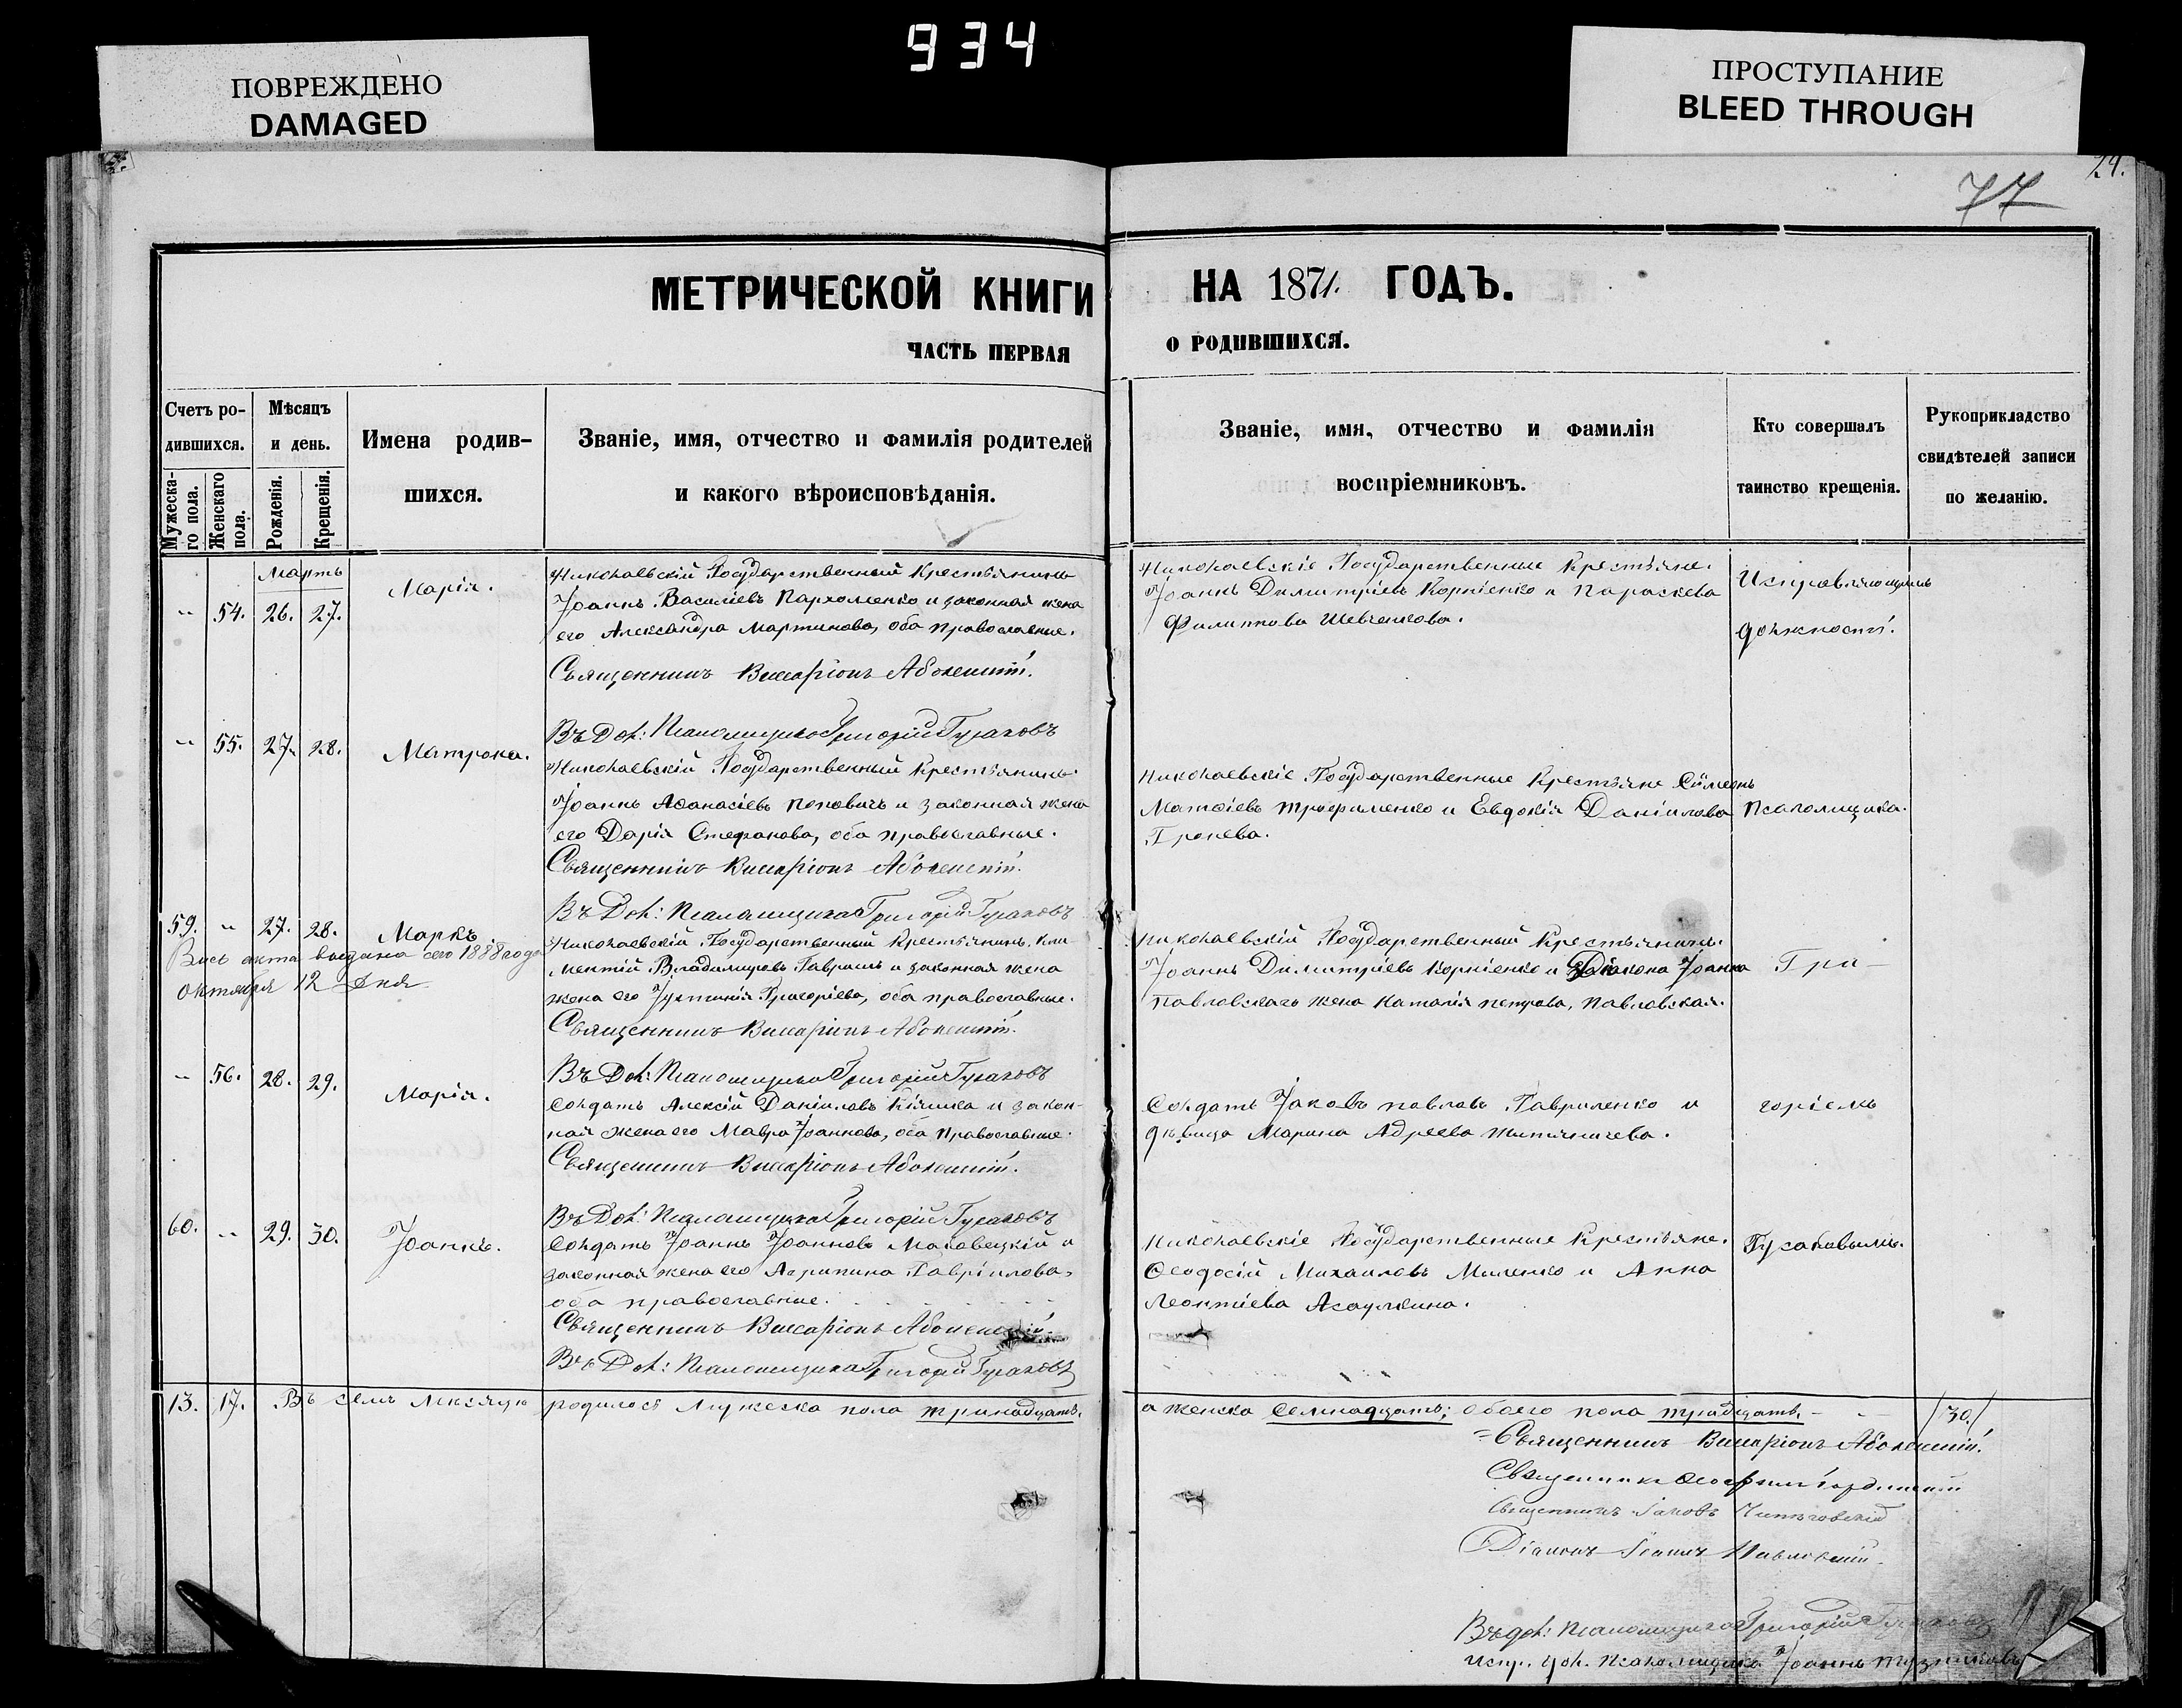 934
ПОВРЕЖДЕНО
DAMAGED
ПРОСТУПАНИЕ
BLEED THROUGH
24.
77
МЕТРИЧЕСКОЙ КНИГИ НА 1871. ГОДЪ.
ЧАСТЬ ПЕРВАЯ О РОДИВШИХСЯ.
Счетъ ро-
дившихся.
Мужеска-
го пола.
Женскаго
пола.
Мѣсяцъ
и день.
Рожденія.
Крещенія.
Имена родив-
шихся.
Званіе, имя, отчество и фамилія родителей
и какого вѣроисповѣданія.
Званіе, имя, отчество и фамилія
воспріемниковъ.
Кто совершалъ
таинство крещенія.
Рукоприкладство
свидѣтелей записи
по желанію.
Мартъ
„ 54. 26. 27. Марія.
Николаевскій Государственный Крестьянинъ
Іоаннъ Василіевъ Пархоменко и законная жена
его Александра Мартинова, оба православные.
Священникъ Виссаріонъ
Николаевскіе Государственные Крестьяне.
Іоаннъ Димитріевъ Корніенко и Параскева
Филиппова Шевченкова.
Исправляющимъ
должность.
„ 55. 27. 28. Матрона.
Въ Дол: Псаломщика Григорій
Николаевскій Государственный Крестьянинъ
Іоаннъ Аѳанасіевъ Поповичъ и законная жена
его Дарія Стефанова, оба православные.
Священникъ Виссаріонъ
Николаевскіе Государственные Крестьяне Сѵмеонъ
Матѳіевъ Трофименко и Евдокія Даніилова
Гронева.
Псаломщика.
59. „ 27. 28. Маркъ
Вись акта выдана сего 1888 года
октября 12 дня
Въ Дол: Псаломщика Григорій
Николаевскій Государственный Крестьянинъ Кли
ментій Владимировъ Гаврашъ и законная жена
жена его Іустинія Григоріева, оба православные.
Священникъ Виссаріонъ
Николаевскій Государственный Крестьянинъ
Іоаннъ Димитріевъ Корніенко и Діакона Іоанна
Павловскаго жена Наталія Петрова, Павловская.
Гри-
„ 56. 28. 29. Марія.
Въ Дол: Псаломщика Григорій
Солдатъ Алексій Даніиловъ и закон-
ная жена его Мавра Іоаннова, оба Православные.
Священникъ Виссаріонъ
Солдатъ Іаковъ Павловъ Гавриленко и
дѣвица Марина Адреева
горіемъ
60. „ 29. 30. Іоаннъ.
Въ Дол: Псаломщика Григорій
Солдатъ Іоаннъ Іоанновъ Маловецкій и
законная жена его Агрипина Гавріилова,
оба православные.
Священникъ Виссаріонъ
Въ Дол: Псаломщика Григорій
Николаевскіе Государственные Крестьяне.
Ѳеодосій Михаиловъ Миленко и Анна
Леонтіева Асаулкина.
Гусаковымъ.
13. 17. Въ семъ мѣсяцѣ родилося мужеска пола тринадцать,
а женска семнадцать; обоего пола тридцать. - - /30./
Священникъ Виссаріонъ
Священникъ
Священникъ Іаковъ
Діаконъ Іоаннъ Павловскій.
Въ дол: Псаломщика Григорій
Испр. дол. Псаломщика Іоаннъ